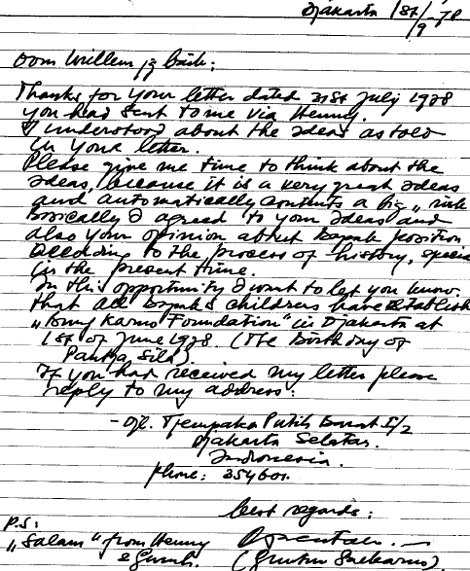 Djakarta 1st/9-78
Oom Willem jg baik:
Thanks for your letter dated 31st July 1978
you had sent to me via Henny.
I understood about the ideas as told
in your letter.
Please give me time to think about the
ideas, because it is a very great ideas
and automatically contents a big "risk
Basically I agreed to your ideas and
also your opinion about Bapak position
according to the process of history, special
in the present time.
In this opportunity I want to let you know,
that all Bapak's children have establish
"Bung Karno Foundation" in Djakarta at
1st of June 1978. (The Birthday of
Pantja Sila).
If you had received my letter please
reply to my address:
- Djl. Tjempaka Putih Barat I/2
Djakarta Selatan.
Indonesia.
phone: 354601.
best regards:
P.S:
"Salam" from Henny
& Guruh.
(Guntur Soekarno).